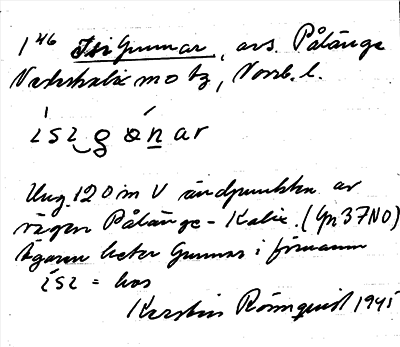 1 46 Isi Gunnar, avs. Pålänge
Nederkalix mo tg, Norrb. l.
ísi gánar
Ung. 120 m V ändpunkten av
vägen Pålänge - Kalix. (Yn 37 NO)
Ägaren heter Gunnar i förnamn
isi = hos
Kerstin Rönnquist 1945